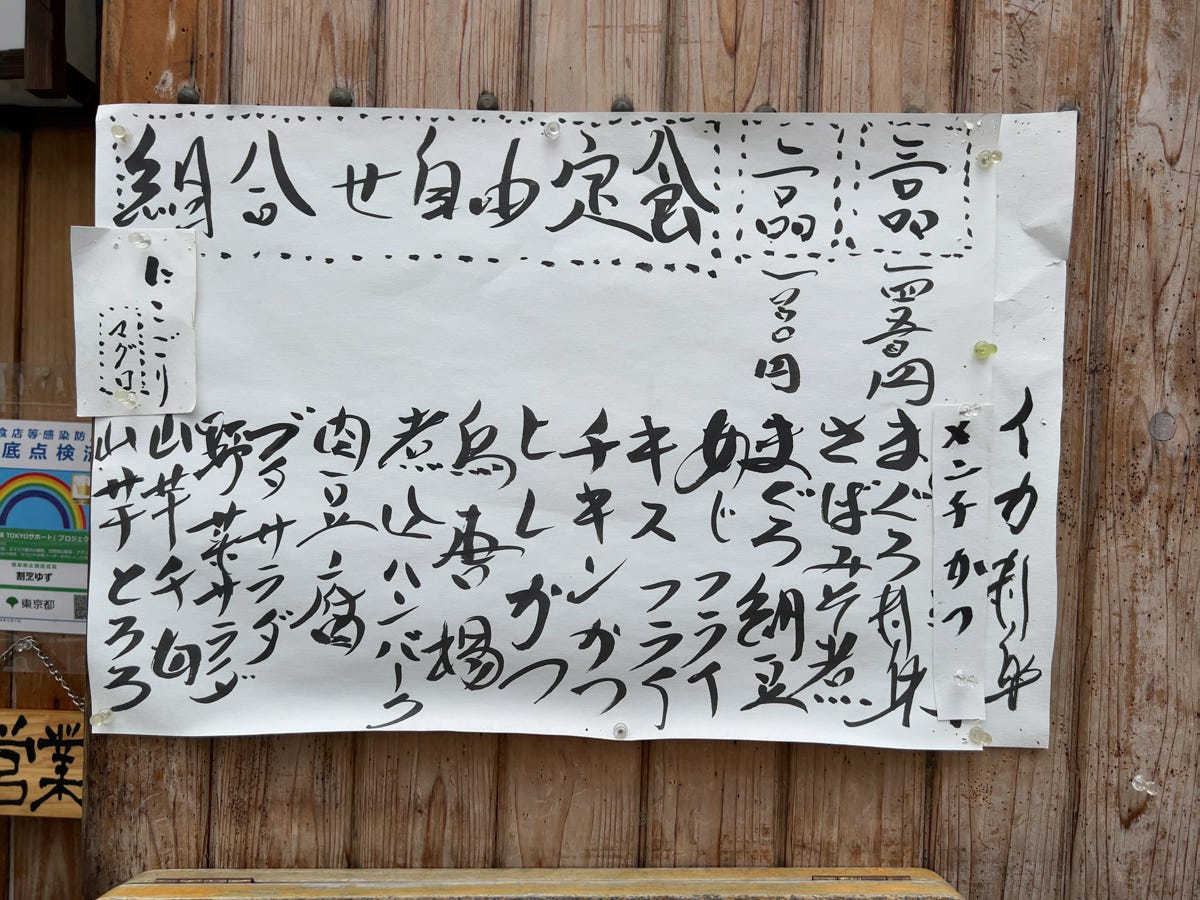 組合せ自由定食
二品
三品
一四五〇円
イカ刺身
メンチかつ
まぐろ刺身
さばみそ煮
まぐろ納豆
あじフライ
キスフライ
チキンかつ
ヒレかつ
鳥唐揚
煮込ハンバーク
肉豆腐
ブタサラダ
野菜サラダ
山芋千切
山芋とろろ
にこごり
マグロ
食店等・感染防
底点検済
TOKYOサポート」プロジェク
割烹ゆず
東京都
営業